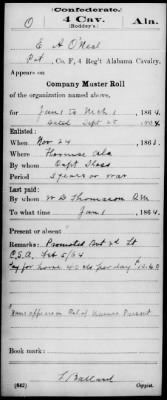 Confederate.
O 4 Cav. Ala.
(Roddey's)
E A O'Neal
Pvt, Co. F, 4 Reg't Alabama Cavalry,
Appears on
Company Muster Roll
of the organization named above,
for Jan 1 to Mch 1, 1864
dated Sept 25 1864
Enlisted:
When Nov 24, 186
Where Ala
By whom Capt
Period 3 years or war
Last paid:
By whom W D Thomason QM
To what time Jan 1, 186
Present or absent
Remarks: Promoted 2d Lt
C.S.A. Feb 5/64
Pay for horse 40 cts per day $
Name appears in Col of Names Present
Book mark:
L Ballard
(642) Copyist.